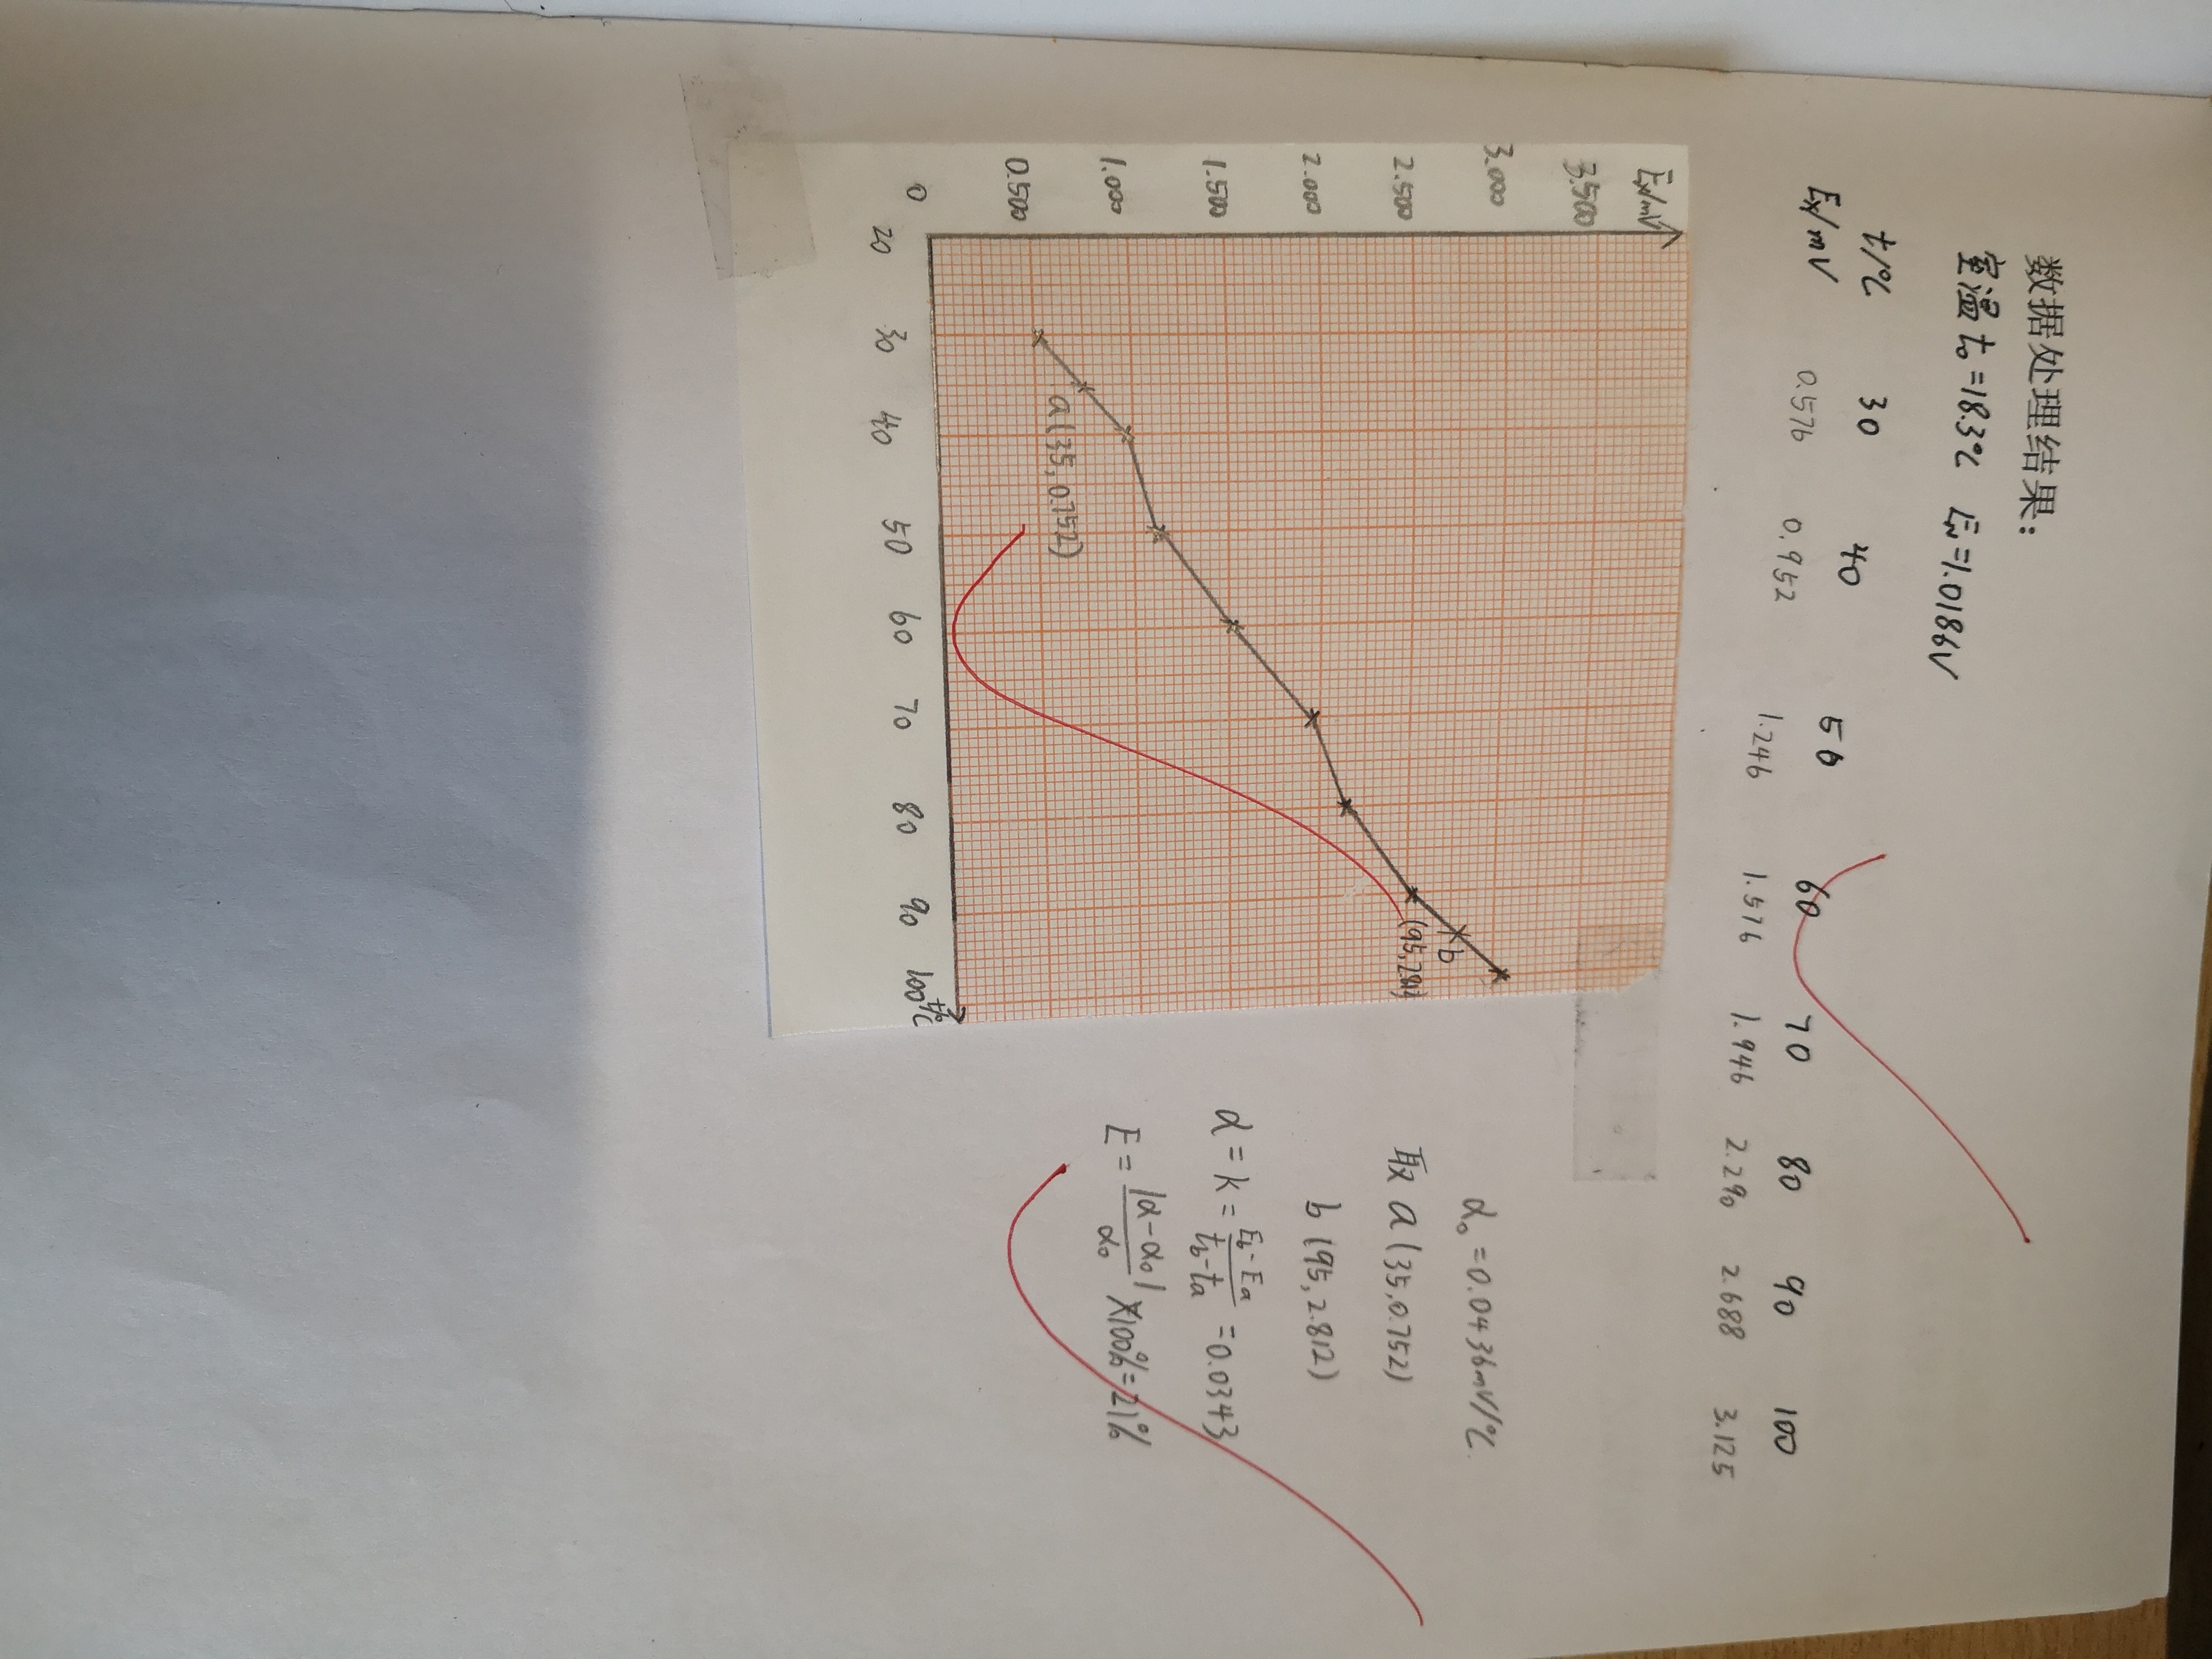 数据处理结果:
室温 t₀=18.3℃ E_N=1.0186V
t/℃ 30 40 50 60 70 80 90 100
Ex/mV 0.576 0.952 1.246 1.576 1.946 2.290 2.688 3.125
Ex/mV
3.500
3.000
2.500
2.000
1.500
1.000
0.500
0
20 30 40 50 60 70 80 90 100 t/℃
a(35,0.752)
b
(95,2.812)
α₀=0.0436mV/℃
取 a(35,0.752)
b(95,2.812)
α=k=\frac{E_b-E_a}{t_b-t_a}=0.0343
E=\frac{|α-α₀|}{α₀}×100%=21%